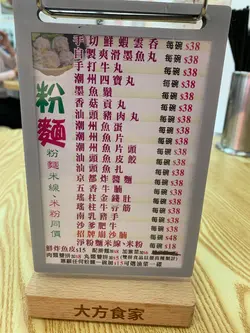 手切鮮蝦雲吞 每碗$38
自製爽滑墨魚丸 每碗$38
手打牛丸 每碗$38
潮州四寶丸 每碗$38
墨魚鬚 每碗$38
香菇貢丸 每碗$38
汕頭豬肉丸 每碗$38
潮州魚蛋 每碗$38
潮州魚片 每碗$38
潮州魚片頭 每碗$38
汕頭魚皮餃 每碗$38
汕頭魚扎 每碗$38
京都炸醬麵 每碗$38
五香牛腩 每碗$38
瑤柱金錢肚 每碗$38
瑤柱牛筋 每碗$38
南乳豬手 每碗$38
沙爹肥牛 每碗$38
招牌崩沙腩 每碗$38
淨粉麵米線、米粉 每碗$18
粉麵
粉麵米線、米粉同價
鮮炸魚皮$15
大方食家